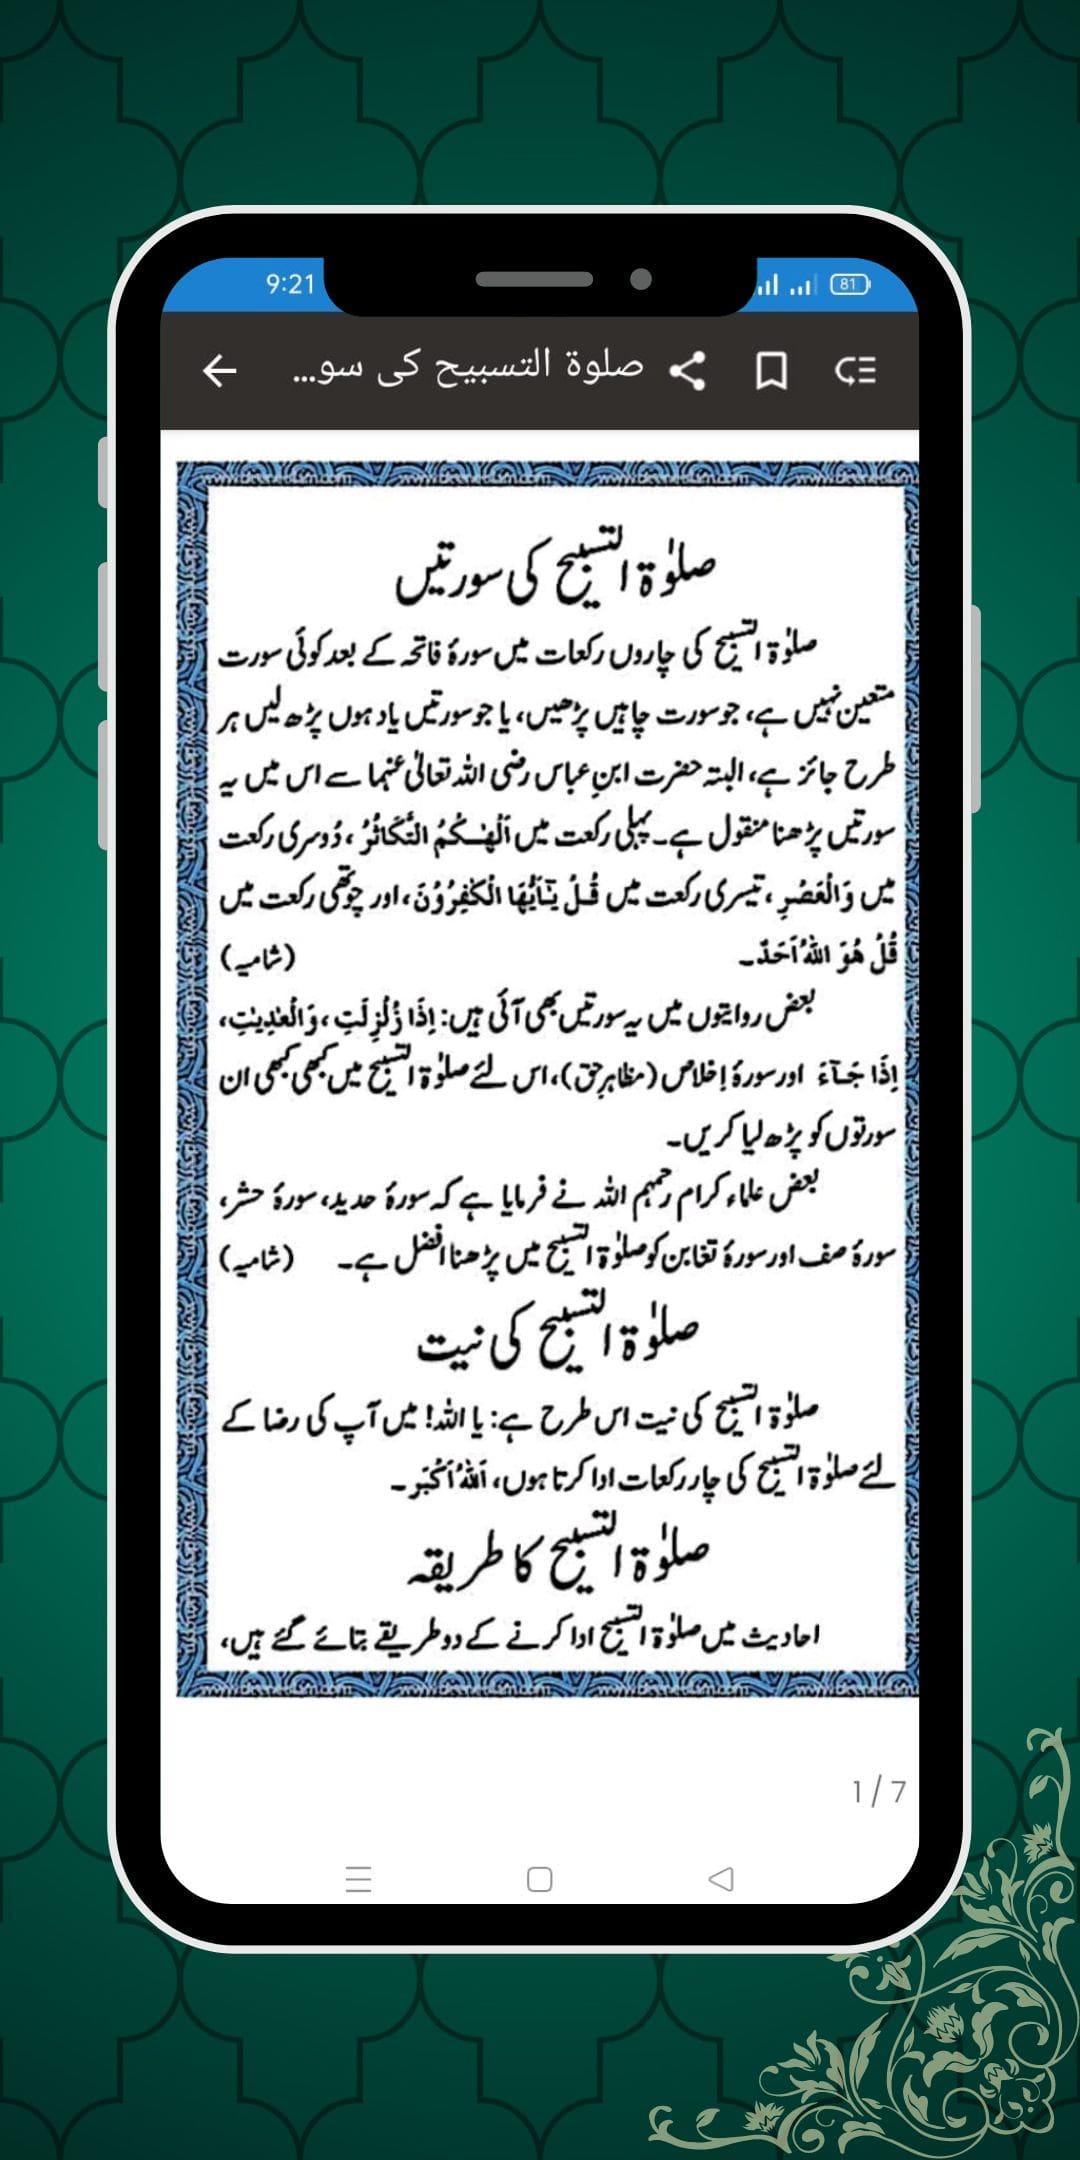 9:21
81
صلوة التسبیح کی سو...
صلوٰۃ التسبیح کی سورتیں
صلوٰۃ التسبیح کی چاروں رکعات میں سورۂ فاتحہ کے بعد کوئی سورت
متعین نہیں ہے، جو سورت چاہیں پڑھیں، یا جو سورتیں یاد ہوں پڑھ لیں ہر
طرح جائز ہے، البتہ حضرت ابنِ عباس رضی اللہ تعالیٰ عنہما سے اس میں یہ
سورتیں پڑھنا منقول ہے۔ پہلی رکعت میں اَلْهٰىكُمُ التَّكَاثُرُ ، دُوسری رکعت
میں وَالْعَصْرِ ، تیسری رکعت میں قُلْ يٰٓاَيُّهَا الْكٰفِرُوْنَ، اور چوتھی رکعت میں
قُلْ هُوَ اللّٰهُ اَحَدٌ۔ (شامیہ)
بعض روایتوں میں یہ سورتیں بھی آئی ہیں: اِذَا زُلْزِلَتِ ، وَالْعٰدِيٰتِ،
اِذَا جَآءَ اور سورۂ اِخلاص (مظاہرِ حق)، اس لئے صلوٰۃ التسبیح میں کبھی کبھی ان
سورتوں کو پڑھ لیا کریں۔
بعض علماء کرام رحمہم اللہ نے فرمایا ہے کہ سورۂ حدید، سورۂ حشر،
سورۂ صف اور سورۂ تغابن کو صلوٰۃ التسبیح میں پڑھنا افضل ہے۔ (شامیہ)
صلوٰۃ التسبیح کی نیت
صلوٰۃ التسبیح کی نیت اس طرح ہے: یا اللہ! میں آپ کی رضا کے
لئے صلوٰۃ التسبیح کی چار رکعات ادا کرتا ہوں، اَللّٰهُ اَكْبَر۔
صلوٰۃ التسبیح کا طریقہ
احادیث میں صلوٰۃ التسبیح ادا کرنے کے دو طریقے بتائے گئے ہیں،
1 / 7